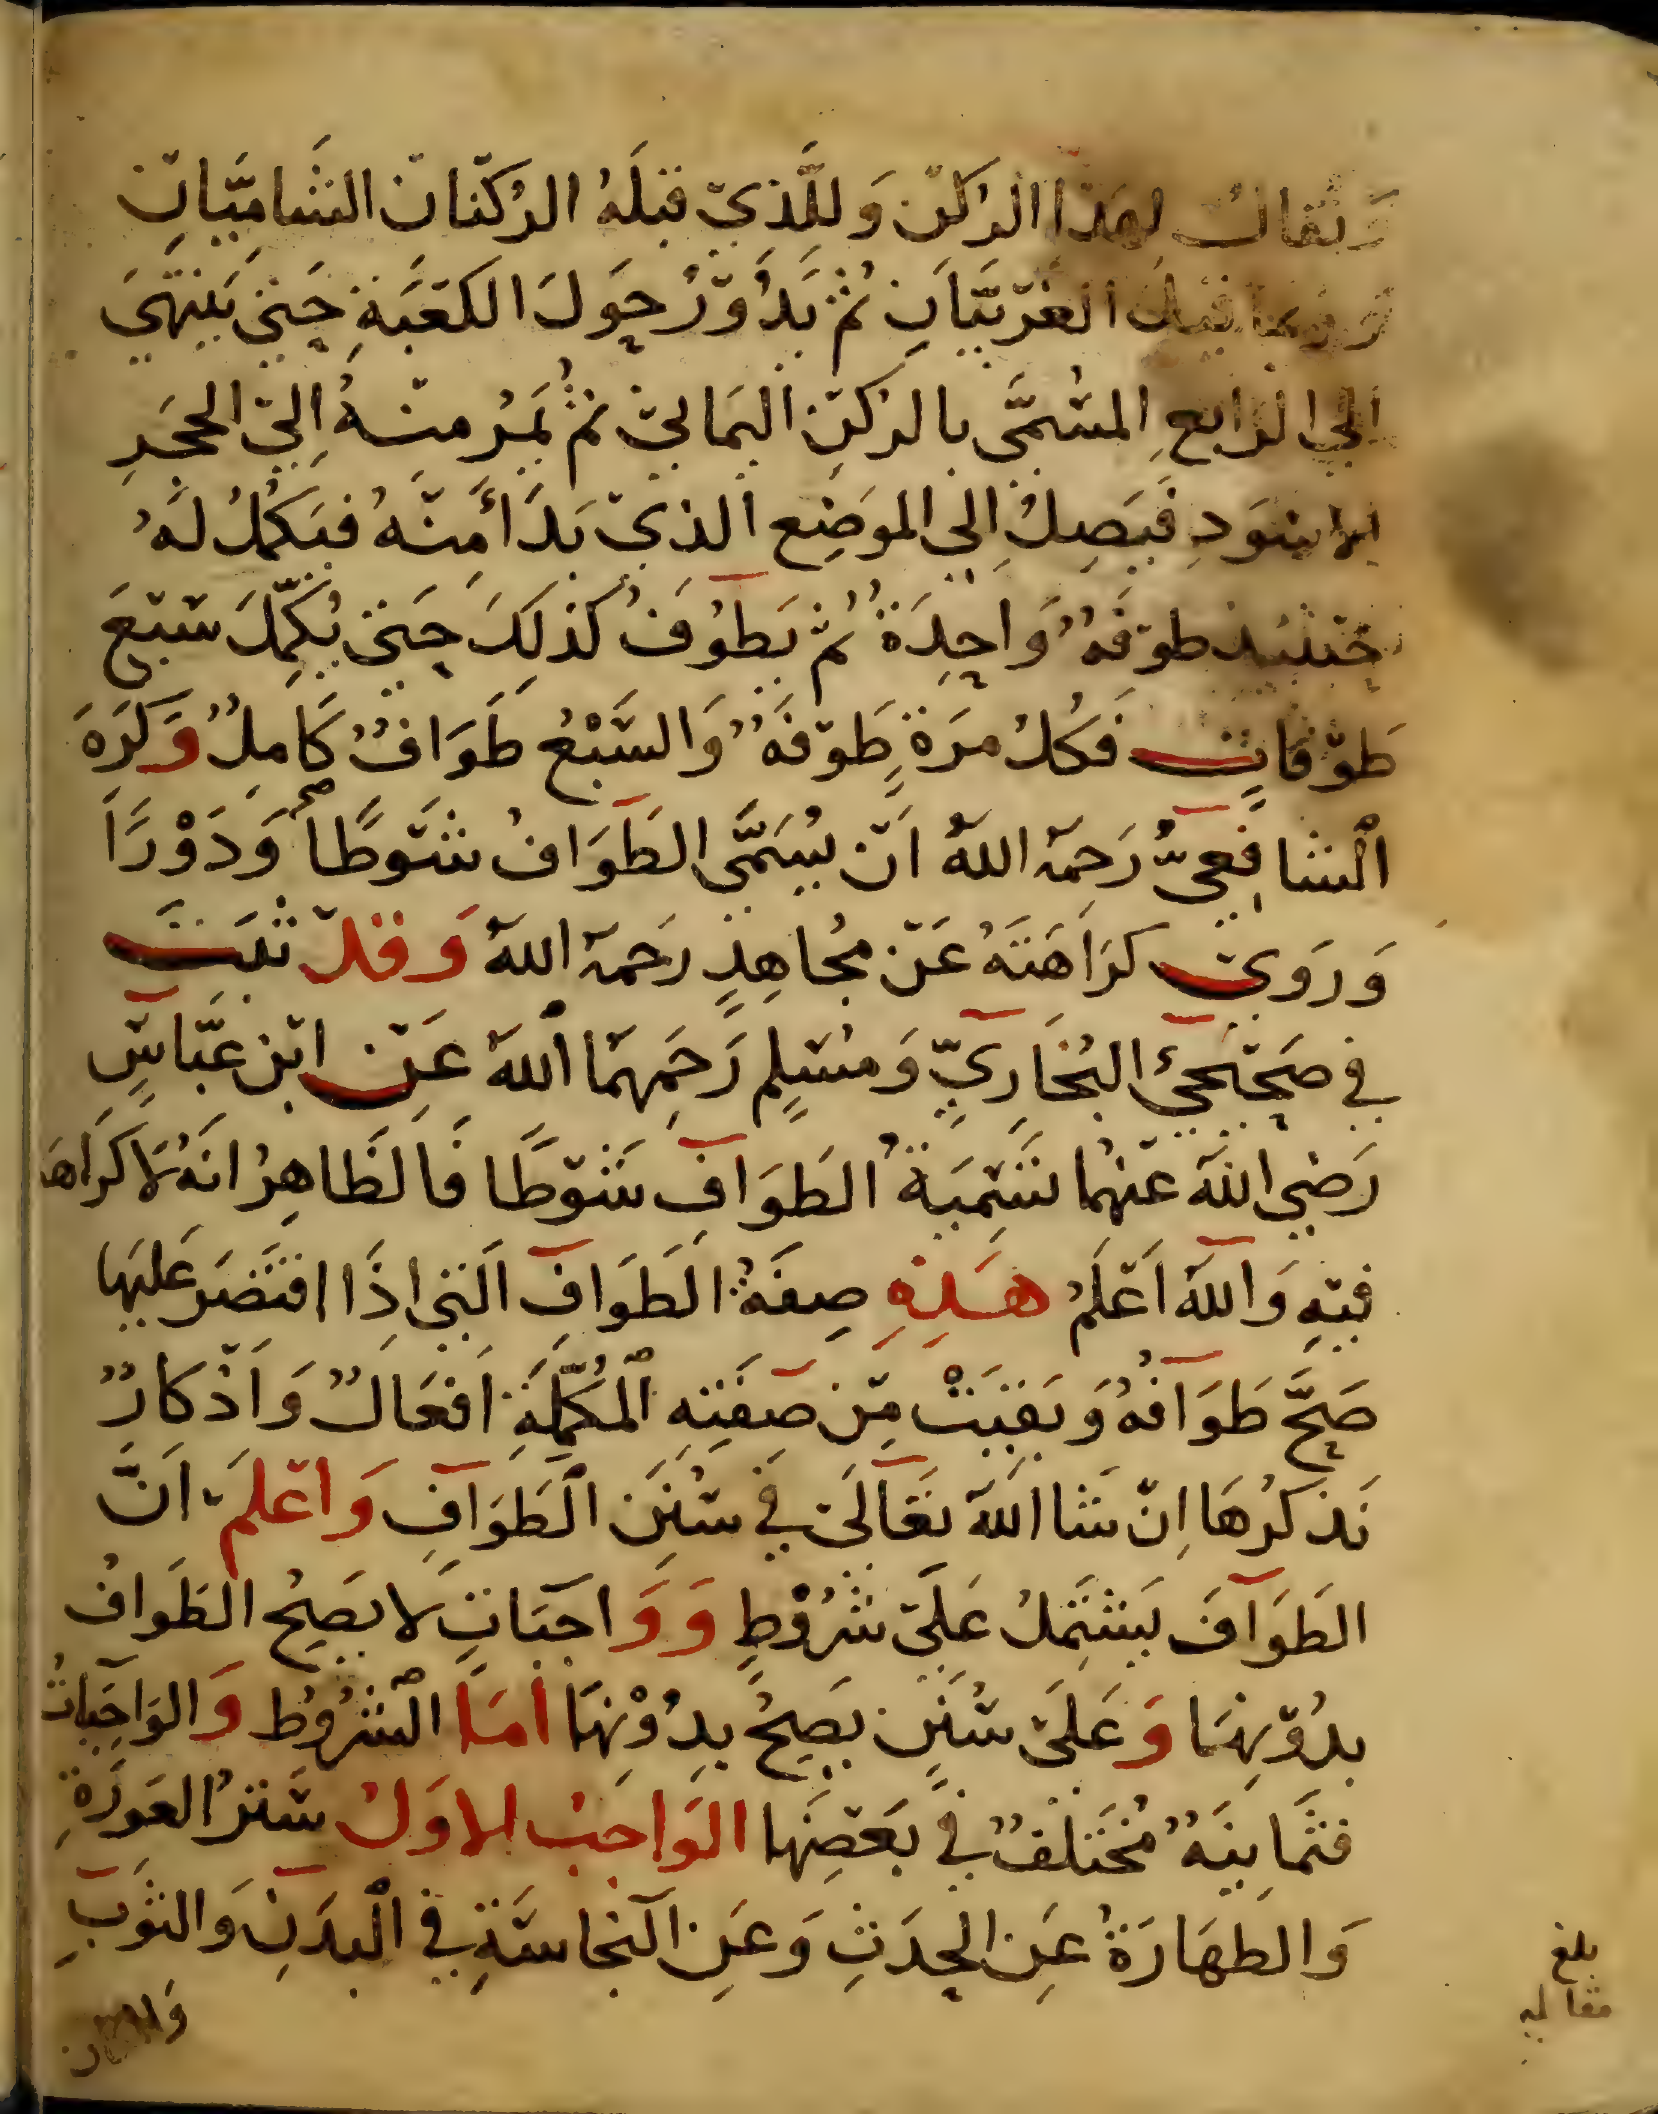 وَيُقَالُ لِهَذَا الرُكْنِ وَلِلَّذِيْ قَبْلَهُ الرُكْنَانِ الشَّامِيَّانِ
وَرُبَّمَا قِيْلَ الغَرْبِيَّانِ ثُمَّ يَدُوْرُ حَوْلَ الكَعْبَةِ حَتَى يَنْتَهِيَ
الى الرَابِعِ المُسَمَّى بالرُكْنِ اليَمانِيْ ثُمَّ يَمُرُ مِنْهُ اِلىَ الحَجَرِ
الاسْوَدِ فَيَصِلُ اِلى المَوضِعِ الَّذِيْ بَدَأَ مِنْهُ فَيَكْمُلُ لَهُ
حِيْنَئِذٍ طَوْفَةٌ وَاحِدَةٌ ثُمَّ يَطُوْفُ كَذلِكَ حَتَى يُكَمِّلَ سَبْعَ
طَوْفَاتٍ فَكُلُ مَرَةٍ طَوْفَةٌ وَالسَّبْعُ طَوَافٌ كَامِلٌ وَكَرِهَ
الشَافِعِيُّ رَحِمَهُ اللهُ اَنْ يُسَمَّى الطَوَافُ شَوْطًا وَدَوْرًا
وَرَوَى كَرَاهَتَهُ عَنْ مُجَاهِدٍ رَحِمَهُ اللهُ وَقَدْ ثَبَتَ
في صَحِيْحَيِ البُخَارِيِّ وَمُسْلِمٍ رَحِمَهُمَا اللهُ عَنِ ابْنِ عَبَّاسٍ
رَضِيَ اللهُ عَنْهُمَا تَسْمِيَةُ الطَوَافِ شَوْطًا فَالظَاهِرُ اَنَهُ لَا كَرَاهَة
فِيْهِ وَاللهُ اَعْلَمُ هَذِهِ صِفَةُ الطَوَافِ الَتِي اِذَا اقْتَصَرَ عَلَيْهَا
صَحَّ طَوَافُهُ وَبَقِيَتْ مِنْ صِفَتِهِ المُكَمِّلَةِ اَفْعَالٌ وَاَذْكَارٌ
نَذْكُرُهَا اِنْ شَا اللهُ تَعَالَى فِي سُنَنِ الطَوَافِ وَاعْلَمْ اَنَّ
الطَوَافَ يَشْتَمِلُ عَلَى شُرُوْطٍ وَوَاجِبَاتٍ لَا يَصِحُ الطَوَافُ
بِدُوْنِهَا وَعَلَى سُنَنٍ يَصِحُ بِدُوْنِهَا اَمَا الشُرُوْطُ وَالوَاجِبَاتُ
فَثَمَانِيَةٌ مُخْتَلَفٌ فِي بَعْضِهَا الوَاجِبُ الاَوَلُ سَتْرُ العَوْرَةِ
وَالطَهَارَةُ عَنِ الحَدَثِ وَعَنِ النَجَاسَةِ فِي البَدَنِ وَالثَوْبِ
وَالمكان
بلغ
مقابلة